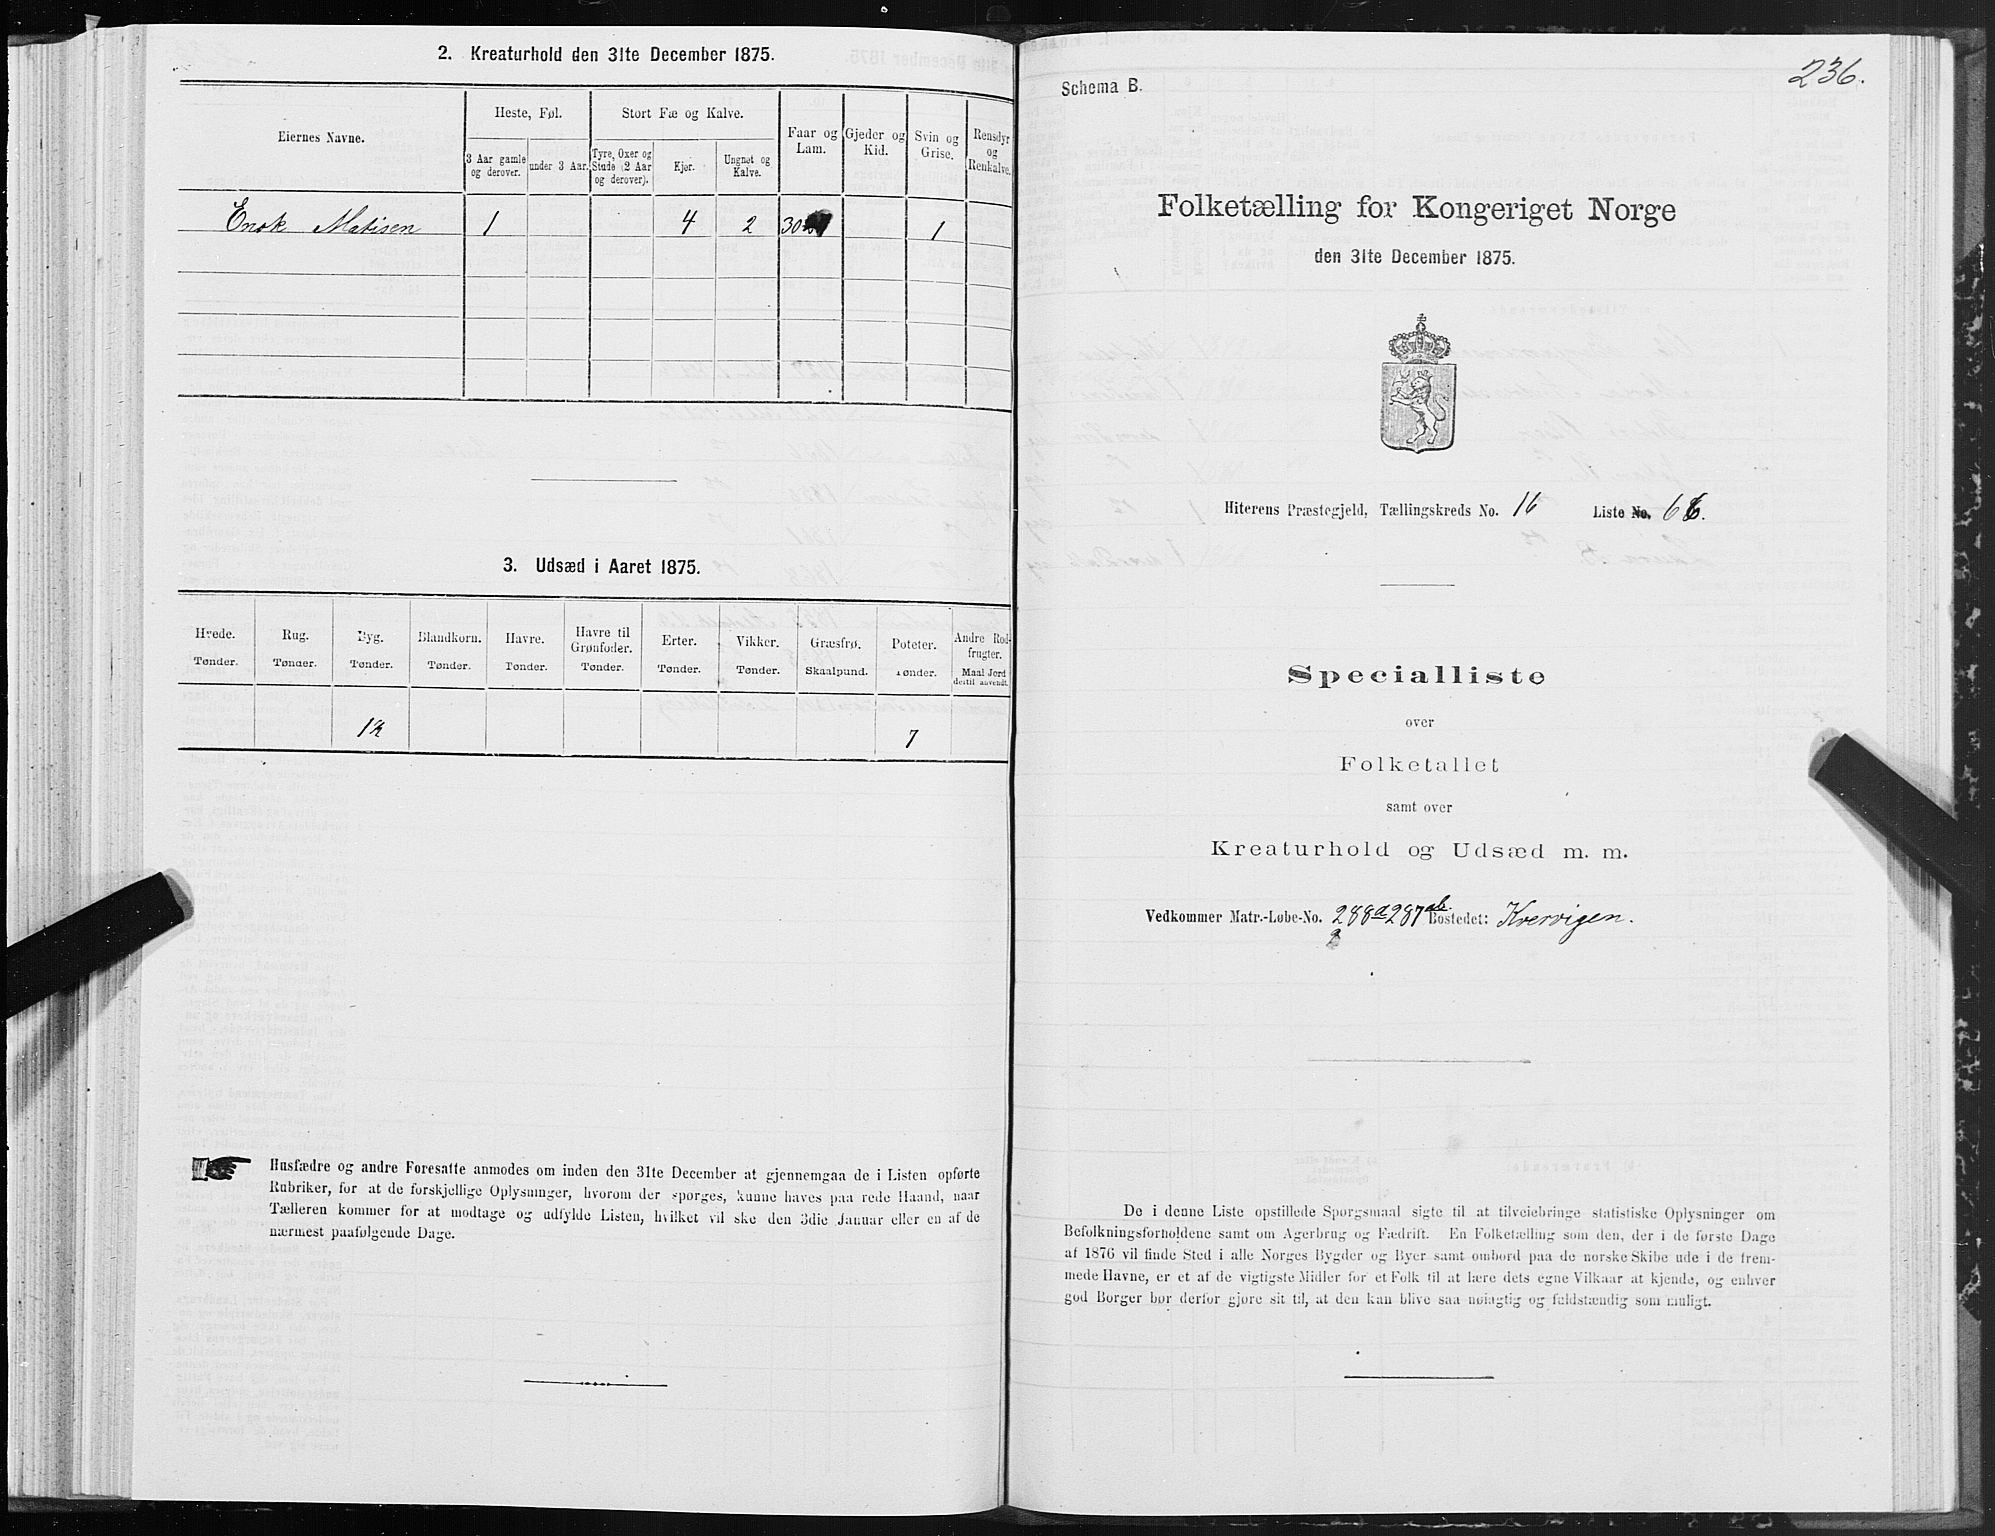 2. Kreaturhold den 31te December 1875.
Eiernes Navne.
Heste, Føl.
Stort Fæ og Kalve.
Faar og Lam.
Gjeder og Kid.
Svin og Grise.
Rensdyr og Renkalve.
3 Aar gamle og derover.
under 3 Aar.
Tyre, Oxer og Stude (2 Aar og derover).
Kjør.
Ungnøt og Kalve.
Enok Matisen 1 4 2 30 1
3. Udsæd i Aaret 1875.
Hvede. Rug. Byg. Blandkorn. Havre. Havre til Grønfoder. Erter. Vikker. Græsfrø. Poteter. Andre Rodfrugter.
Tønder. Tønder. Tønder. Tønder. Tønder. Tønder. Tønder. Tønder. Skaalpund. Tønder. Maal Jord dertil anvendt.
7
Husfædre og andre Foresatte anmodes om inden den 31te December at gjennemgaa de i Listen opførte
Rubriker, for at de forskjellige Oplysninger, hvorom der spørges, kunne haves paa rede Haand, naar
Tælleren kommer for at modtage og udfylde Listen, hvilket vil ske den 3die Januar eller en af de
nærmest paafølgende Dage.
236.
Schema B.
Folketælling for Kongeriget Norge
den 31te December 1875.
Hiterens Præstegjeld, Tællingskreds No. 16 Liste No. 66.
Specialliste
over
Folketallet
samt over
Kreaturhold og Udsæd m. m.
Vedkommer Matr.-Løbe-No. 288a 287ab. Bostedet: Kvervigen.
De i denne Liste opstillede Spørgsmaal sigte til at tilveiebringe statistiske Oplysninger om
Befolkningsforholdene samt om Agerbrug og Fædrift. En Folketælling som den, der i de første Dage
af 1876 vil finde Sted i alle Norges Bygder og Byer samt ombord paa de norske Skibe ude i de frem-
mede Havne, er et af de vigtigste Midler for et Folk til at lære dets egne Vilkaar at kjende, og enhver
god Borger bør derfor gjøre sit til, at den kan blive saa nøiagtig og fuldstændig som muligt.